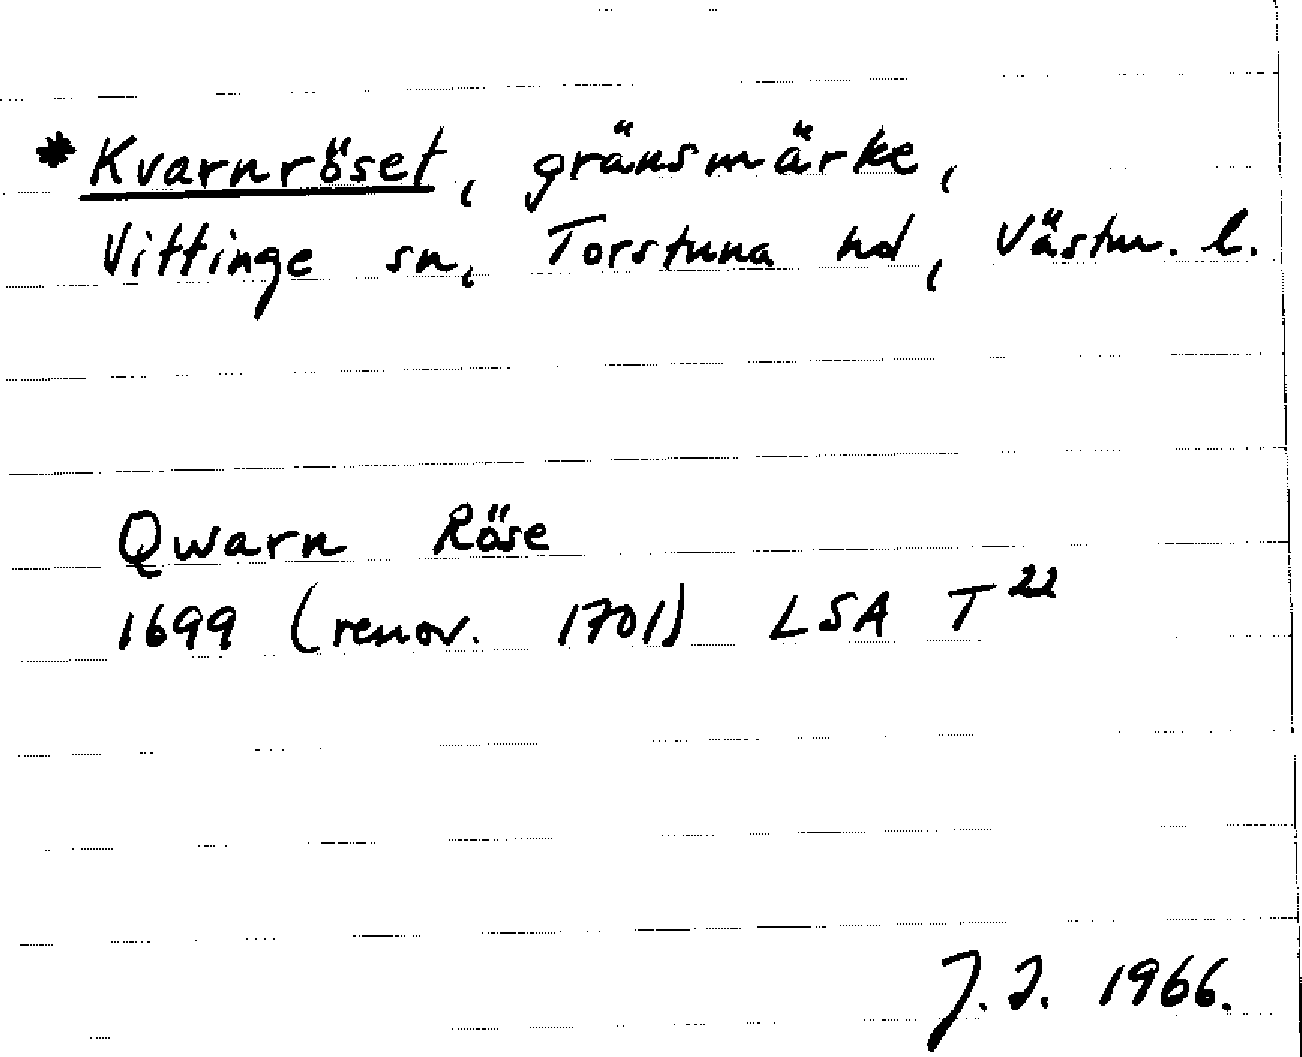 * Kvarnröset, gränsmärke,
Vittinge sn, Torstuna hd, Västm. l.
Qwarn Röse
1699 (renov. 1701) LSA T 22
J. I. 1966.